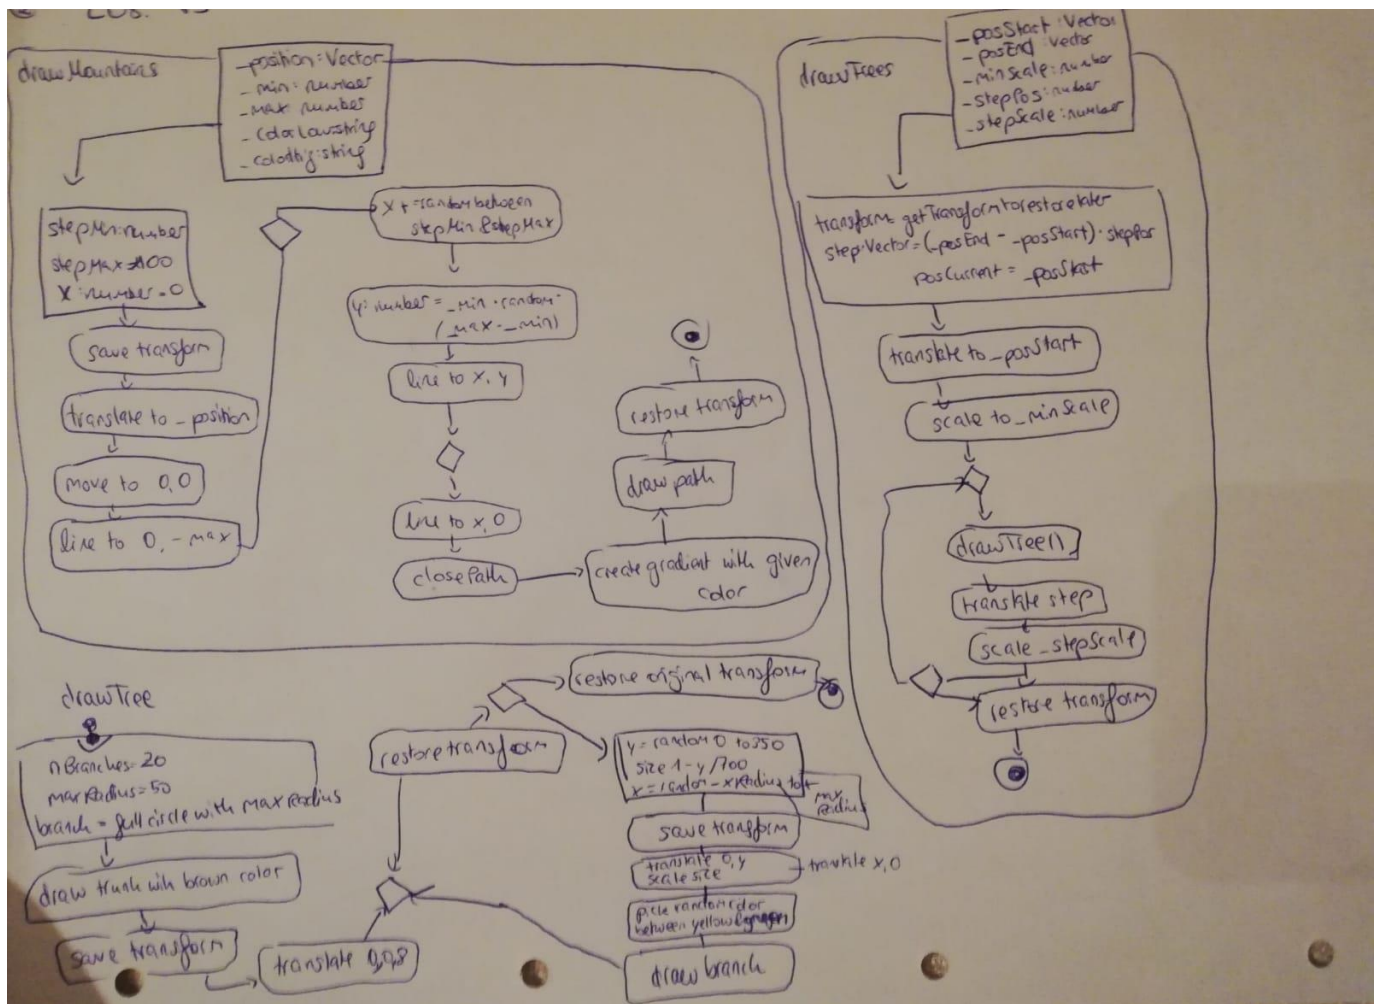 drawMountains
_position: Vector
_min: number
_max: number
_colorLow: string
_colorHig: string
stepMin: number
stepMax = 100
X: number = 0
save transform
translate to _position
move to 0,0
line to 0, -max
x += random between
stepMin & stepMax
y: number = _min · random ·
(_max - _min)
line to x, y
line to x, 0
closePath
create gradient with given
color
draw path
restore transform
drawTrees
_posStart: Vector
_posEnd: Vector
_minScale: number
_stepPos: number
_stepScale: number
transform = getTransform to restore later
step: Vector = (_posEnd - _posStart) · stepPos
posCurrent = _posStart
translate to _posStart
scale to _minScale
drawTree()
translate step
scale _stepScale
restore transform
drawTree
nBranches = 20
maxRadius = 50
branch = full circle with maxRadius
draw trunk with brown color
save transform
translate 0,0,8
restore transform
restore original transform
y = random 0 to 350
size 1 - y/700
x = random - xRadius to +
max
Radius
save transform
translate 0, y
scale size
translate x, 0
pick random color
between yellow & green
draw branch